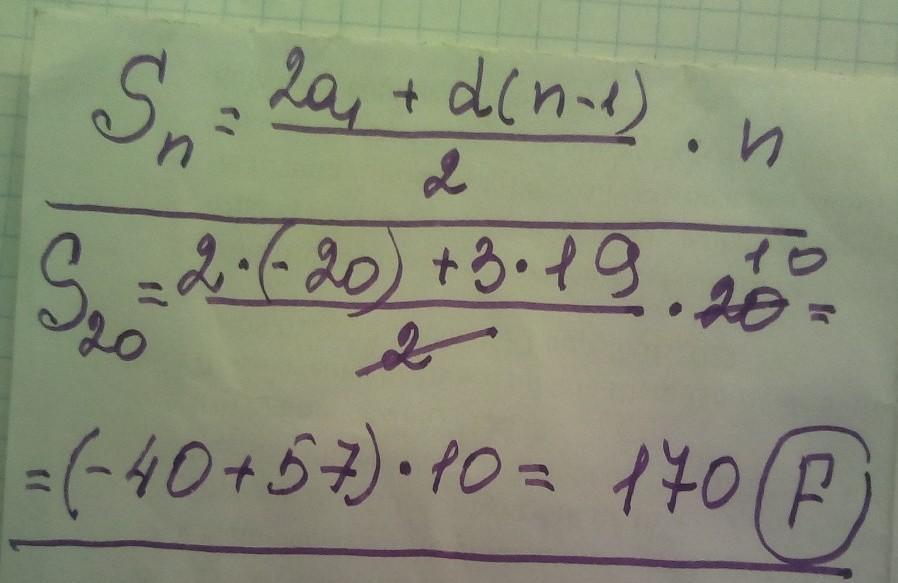 Sₙ = (2a₁ + d(n-1))/2 · n
S₂₀ = (2·(-20) + 3·19)/2 · 20 = 10
= (-40+57)·10 = 170 F